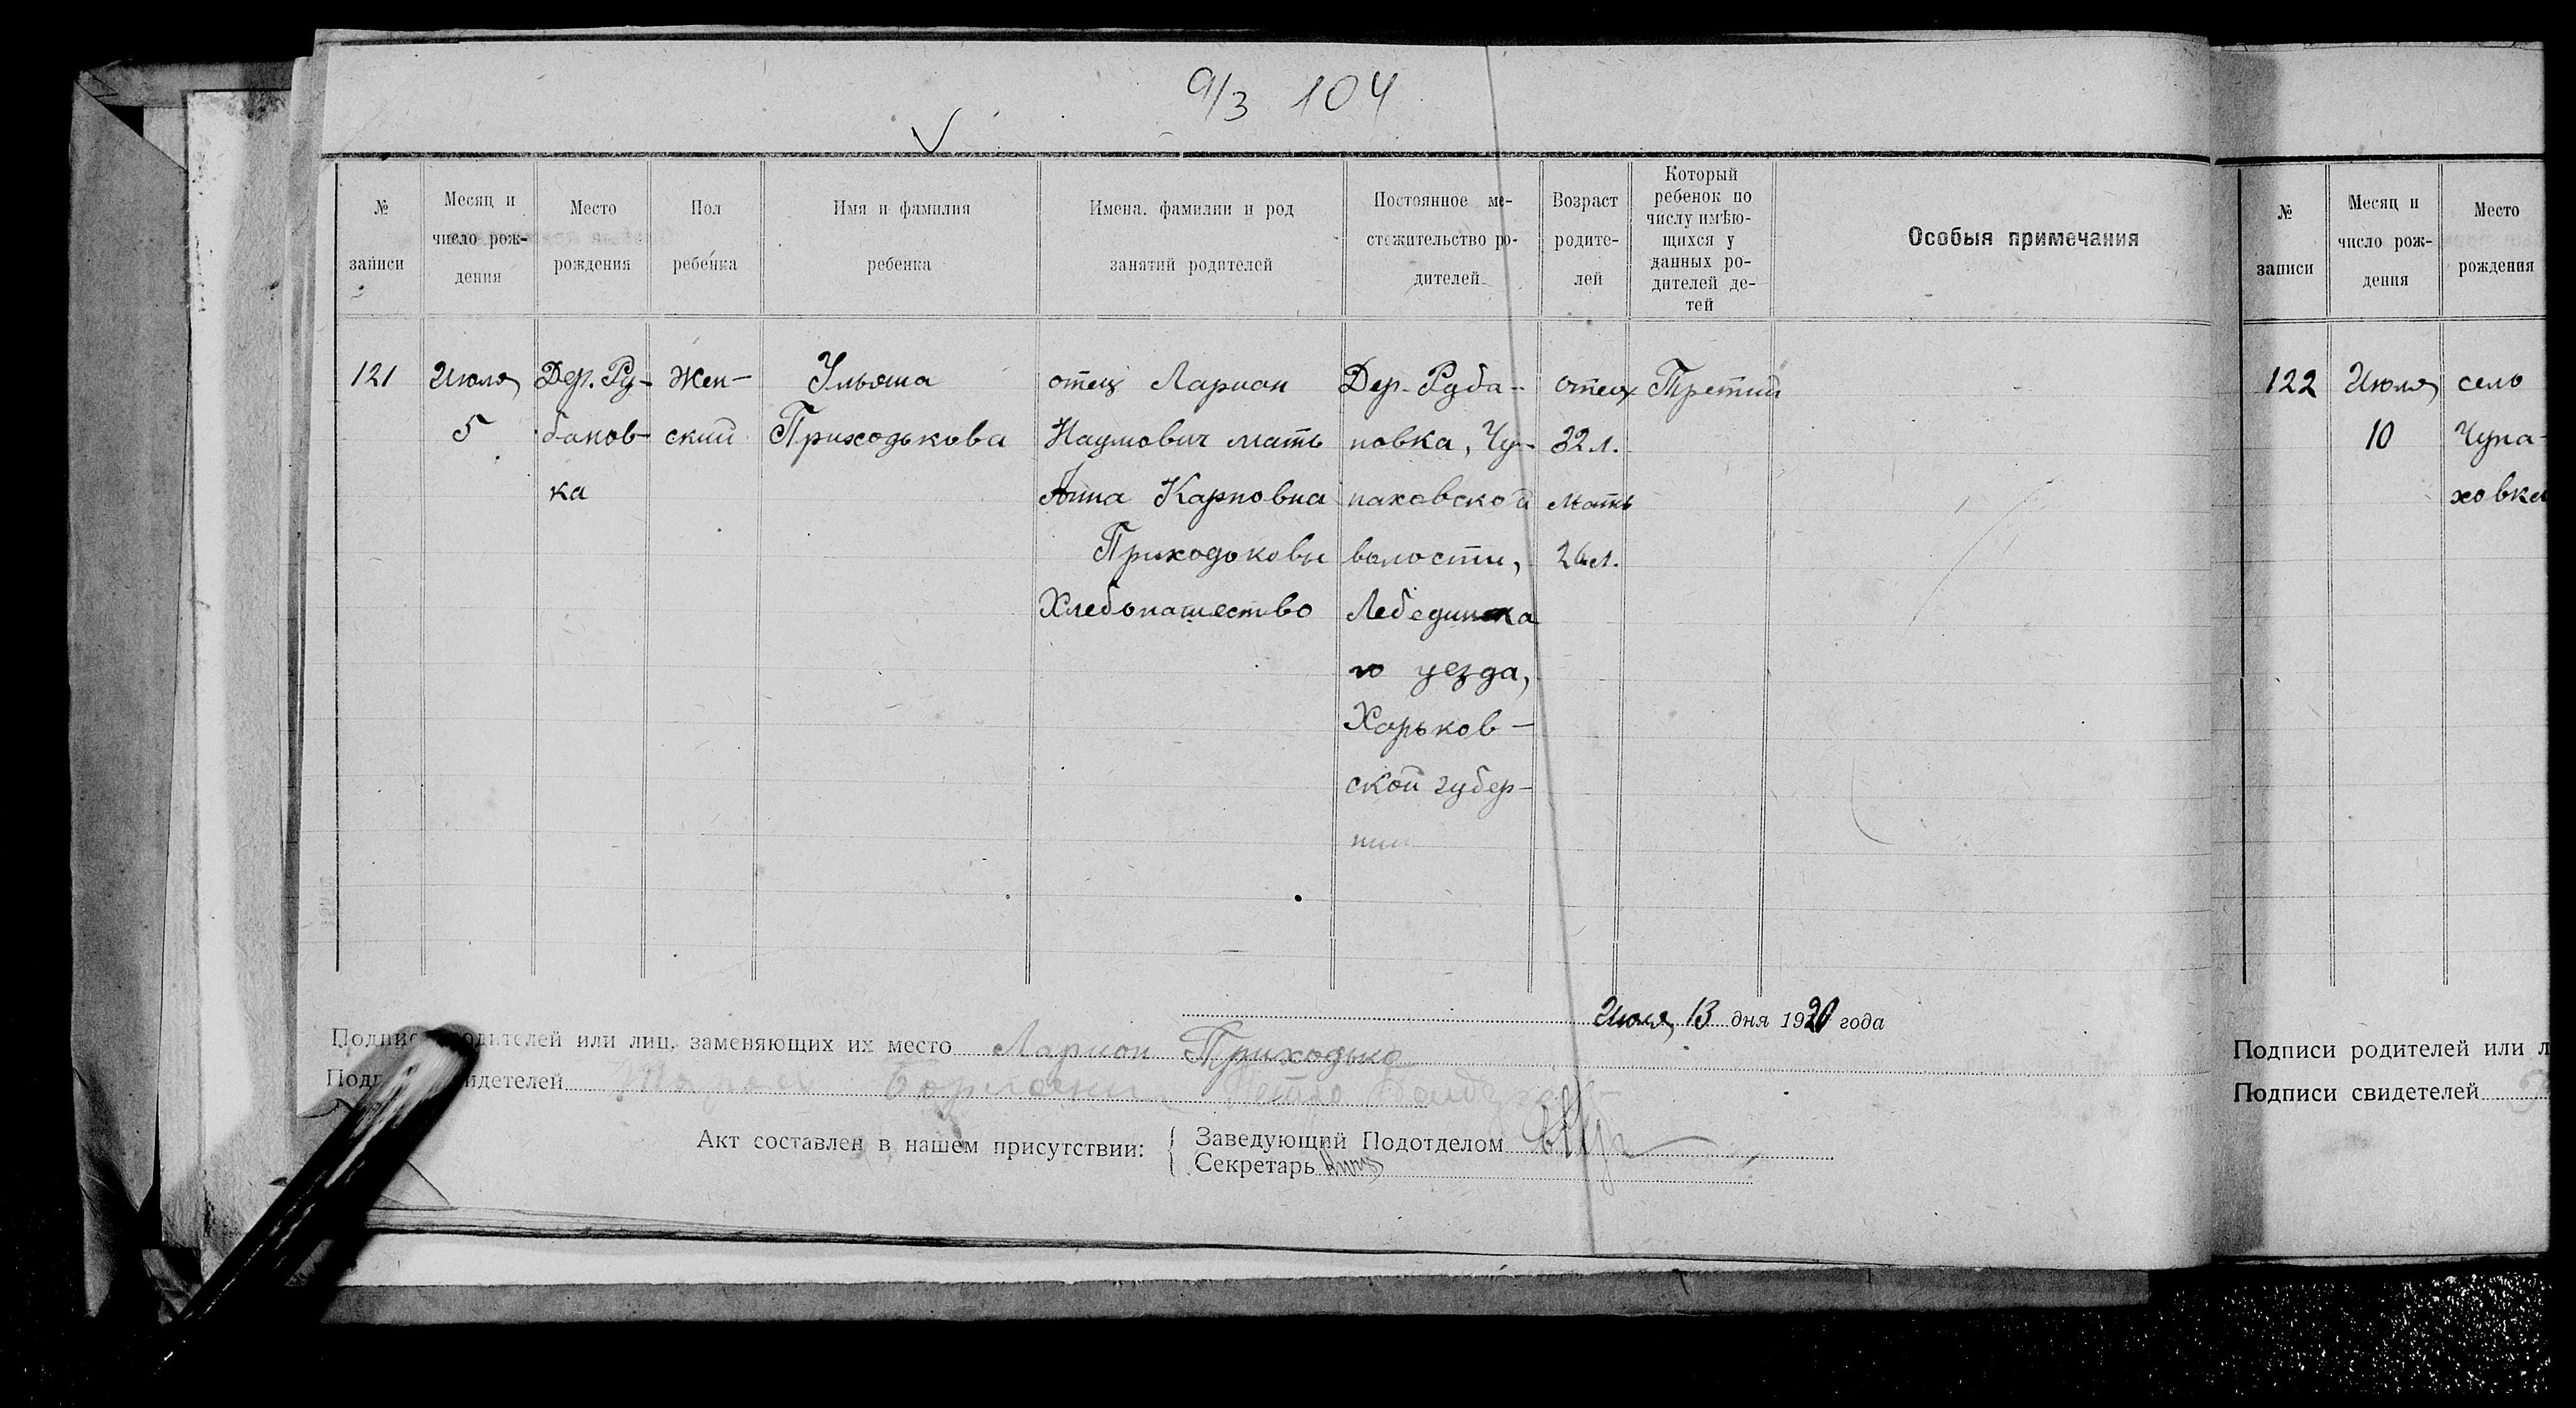 9/3 104
№ записи
Месяц и число рождения
Место рождения
Пол ребенка
Имя и фамилия ребенка
Имена, фамилии и род занятий родителей
Постоянное местожительство родителей
Возраст родителей
Который ребенок по числу имѣющихся у данных родителей детей
Особыя примечания
121
Июля
5
Дер. Ру-
банов-
ка
Жен-
ский
Ульяна
Приходькова
отец Ларион
Наумович мать
Анна Карповна
Приходьковы
Хлебопашество
Дер. Руба-
новка, Чу-
паховской
волости,
Лебединска
го уезда,
Харьков-
ской губер-
нии
отец
32 л.
мать
26 л.
Третий
Июля 13 дня 1920 года
Подписи родителей или лиц, заменяющих их место Ларион Приходько
Подписи свидетелей
Акт составлен в нашем присутствии:
Заведующий Подотделом
Секретарь
№ записи
Месяц и число рождения
Место рождения
122
Июля
10
село
Чупа-
ховка
Подписи родителей или л
Подписи свидетелей